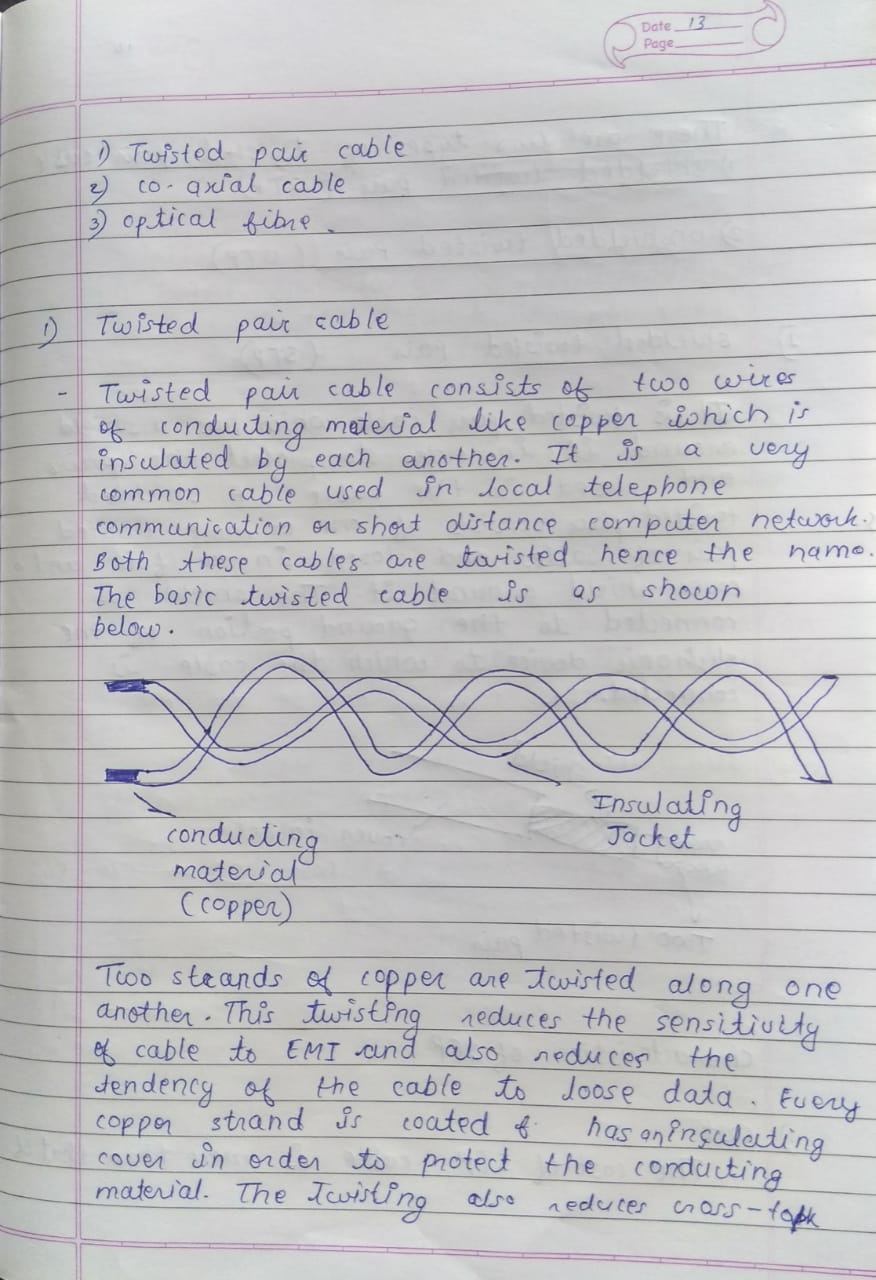 Date 13
Page
1) Twisted pair cable
2) co-axial cable
3) optical fibre.
1) Twisted pair cable
- Twisted pair cable consists of two wires
of conducting material like copper which is
insulated by each another. It is a very
common cable used in local telephone
communication or short distance computer network.
Both these cables are twisted hence the name.
The basic twisted cable is as shown
below.
Insulating
Jacket
conducting
material
(copper)
Two strands of copper are twisted along one
another. This twisting reduces the sensitivity
of cable to EMI and also reduces the
tendency of the cable to loose data. Every
copper strand is coated & has an insulating
cover in order to protect the conducting
material. The Twisting also reduces cross-talk